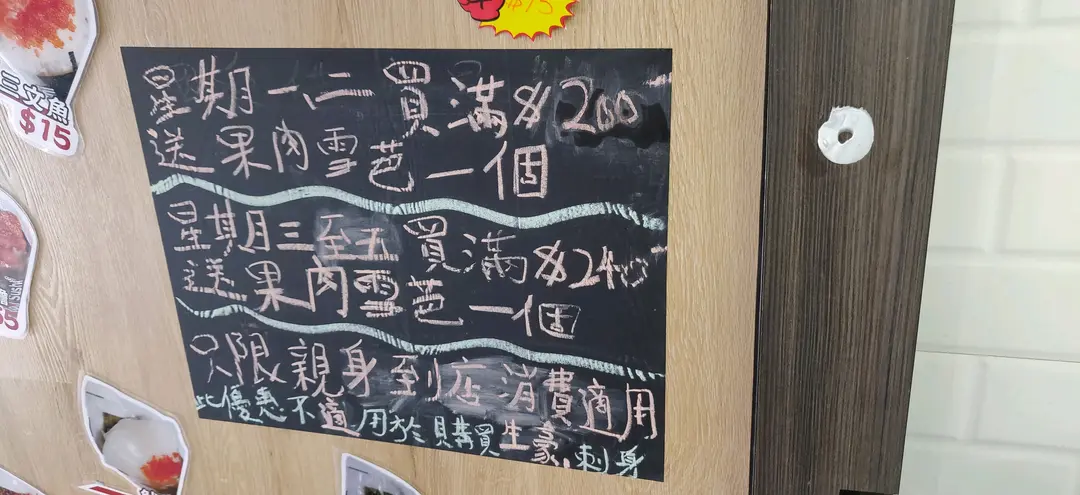 $15
三文魚
$15
星期一、二買滿$200
送果肉雪芭一個
星期三至五買滿$240
送果肉雪芭一個
只限親身到店消費適用
此優惠不適用於購買生蠔.刺身